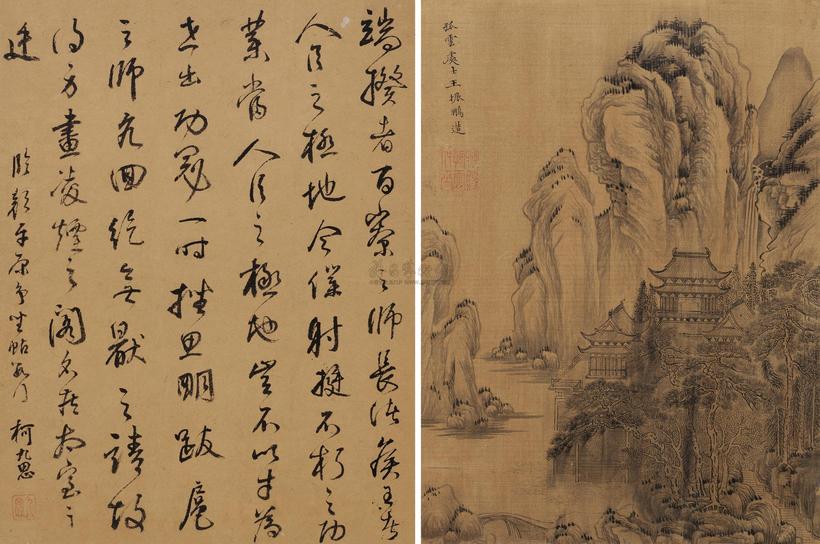 端揆者百寮之師長諸侯王者
人臣之極地今僕射挺不朽之功
業當人臣之極地豈不以才為
世出功冠一時挫思明跋扈
之師抗回紇無厭之請故
得身畫凌煙之閣名藏太室之
廷
臨顏平原爭坐帖數行 柯九思
孤雲處士王振鵬造